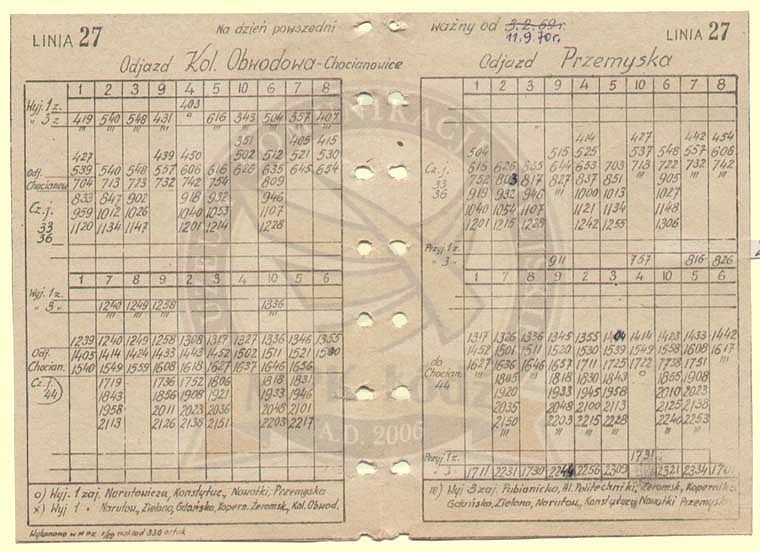 LINIA 27
Na dzień powszedni
ważny od 3.2.69r.
11.9.70r.
LINIA 27
Odjazd Kol. Obwodowa-Chocianowice
Odjazd Przemyska
1 2 3 9 4 5 10 6 7 8
Wyj. 1 z. 403
" 3 z 419 540 548 431 616 345 504 357 407
351 405 415
427 439 450 502 512 521 530
Odj. 539 540 548 557 606 616 626 635 645 654
Chocianow 704 713 723 732 742 754 809
833 847 902 918 932 946
Cz. j. 959 1012 1026 1040 1053 1107
33 1120 1134 1147 1201 1214 1228
36
1 2 3 9 4 5 10 6 7 8
414 427 442 454
504 515 525 537 548 557 606
Cz. j. 616 626 635 644 653 703 713 722 732 742
33 752 803 817 827 837 851 905
36 919 932 946 1000 1013 1027
1040 1054 1107 1121 1134 1148
1201 1215 1228 1242 1255 1306
Przyj. 1 z.
" 3 " 911 757 816 826
1 7 8 9 4 5 10 2 3 6
Wyj. 1 z.
" 3 " 1240 1249 1258 1336
1239 1240 1249 1258 1308 1317 1327 1336 1346 1355
Odj. 1405 1414 1424 1433 1443 1452 1502 1511 1521
Chocian. 1540 1549 1559 1608 1618 1627 1637 1646 1656
Cz. j. 1719 1736 1752 1806 1818 1831
44 1843 1856 1908 1921 1933 1946
1958 2011 2023 2036 2048 2101
2113 2126 2135 2151 2203 2217
1 7 8 9 4 5 10 2 3 6
1317 1326 1336 1345 1355 1404 1414 1423 1433 1442
do 1452 1501 1511 1520 1530 1539 1549 1558 1608 1617
Chocian. 1627 1636 1646 1657 1711 1725 1722 1738 1751
44 1805 1818 1830 1843 1855 1908
1920 1933 1945 1958 2010 2023
2035 2048 2100 2113 2125 2138
2150 2203 2215 2228 2240 2253
Przyj. 1 z. 1731
" 3 " 1711 2231 1730 2244 2256 2309 2321 2334
o) Wyj. 1 zaj. Narutowicza, Konstytuc., Nowotki, Przemyska
x) Wyj 1 " Narutow., Zielona, Gdańska, Kopern. Żeromsk., Kol. Obwod.
III) Wyj 3 zaj. Pabianicka, Al. Politechniki, Żeromsk., Kopernika
Gdańska, Zielona, Narutow., Konstytucyj. Nowotki Przemysk
Wykonano w MPK
MPK Łódź
A.D. 2006